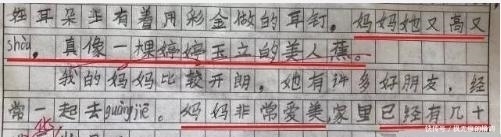 娃耳朵上有着用彩金做的耳钉。妈妈她又高又
shòu。真像一棵婷婷玉立的美人蕉。
我的妈妈比较开朗。她有许多好朋友,经
常一起去guàngjiē。妈妈非常爱美,家里已经有几十